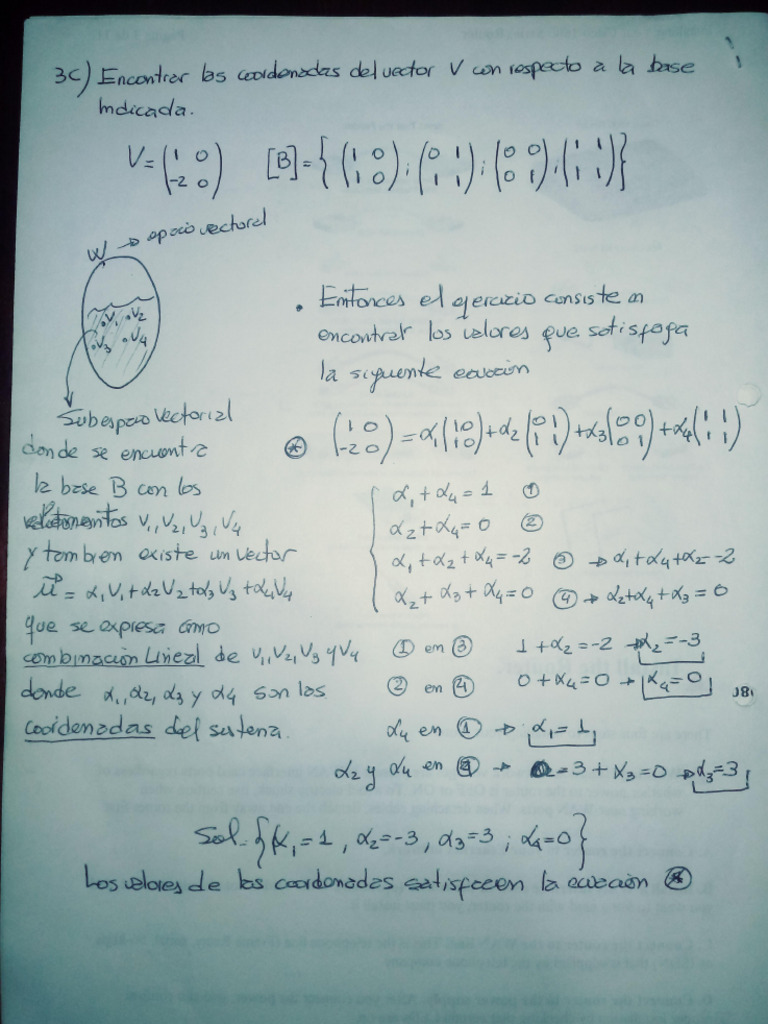 3c) Encontrar las coordenadas del vector V con respecto a la base
Indicada.
V = (1 0; -2 0) [B] = { (1 0; 1 0) ; (0 1; 1 1) ; (0 0; 0 1) , (1 1; 1 1) }
W → espacio vectorial
.V₁ .V₂
.V₃ .V₄
Subespacio vectorial
donde se encuentra
la base B con los
V₁, V₂, V₃, V₄
y tambien existe un vector
u⃗ = α₁V₁ + α₂V₂ + α₃V₃ + α₄V₄
que se expresa como
combinación Lineal de V₁, V₂, V₃ y V₄
donde α₁, α₂, α₃ y α₄ son las
coordenadas del sistema.
• Entonces el ejercicio consiste en
encontrar los valores que satisfaga
la siguiente ecuación
⊛ (1 0; -2 0) = α₁(1 0; 1 0) + α₂(0 1; 1 1) + α₃(0 0; 0 1) + α₄(1 1; 1 1)
α₁ + α₄ = 1 ①
α₂ + α₄ = 0 ②
α₁ + α₂ + α₄ = -2 ③ → α₁ + α₄ + α₂ = -2
α₂ + α₃ + α₄ = 0 ④ → α₂ + α₄ + α₃ = 0
① en ③ 1 + α₂ = -2 → α₂ = -3
② en ④ 0 + α₄ = 0 → α₄ = 0
α₄ en ① → α₁ = 1
α₂ y α₄ en ④ → -3 + α₃ = 0 → α₃ = 3
Sol = { α₁ = 1 , α₂ = -3 , α₃ = 3 ; α₄ = 0 }
Los valores de las coordenadas satisfacen la ecuación ⊛